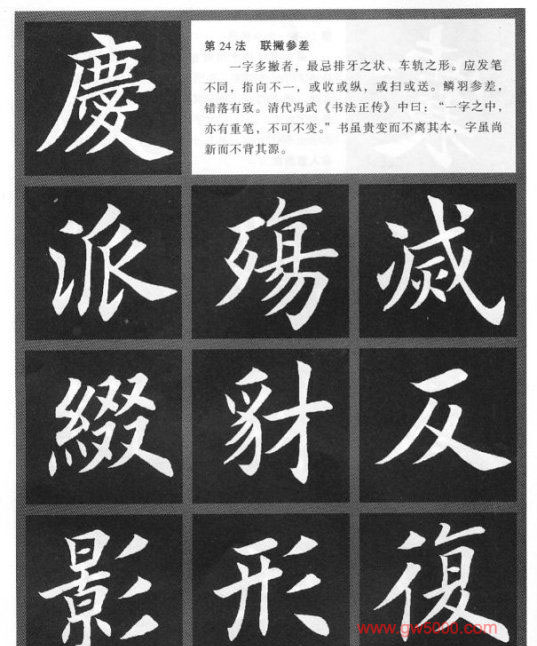 慶
第24法 联撇参差
一字多撇者，最忌排牙之状、车轨之形。应发笔
不同，指向不一，或收或纵，或扫或送。鳞羽参差，
错落有致。清代冯武《书法正传》中曰：“一字之中，
亦有重笔，不可不变。”书虽贵变而不离其本，字虽尚
新而不背其源。
派 殤 滅
綴 豺 反
影 形 復
www.gw5000.com